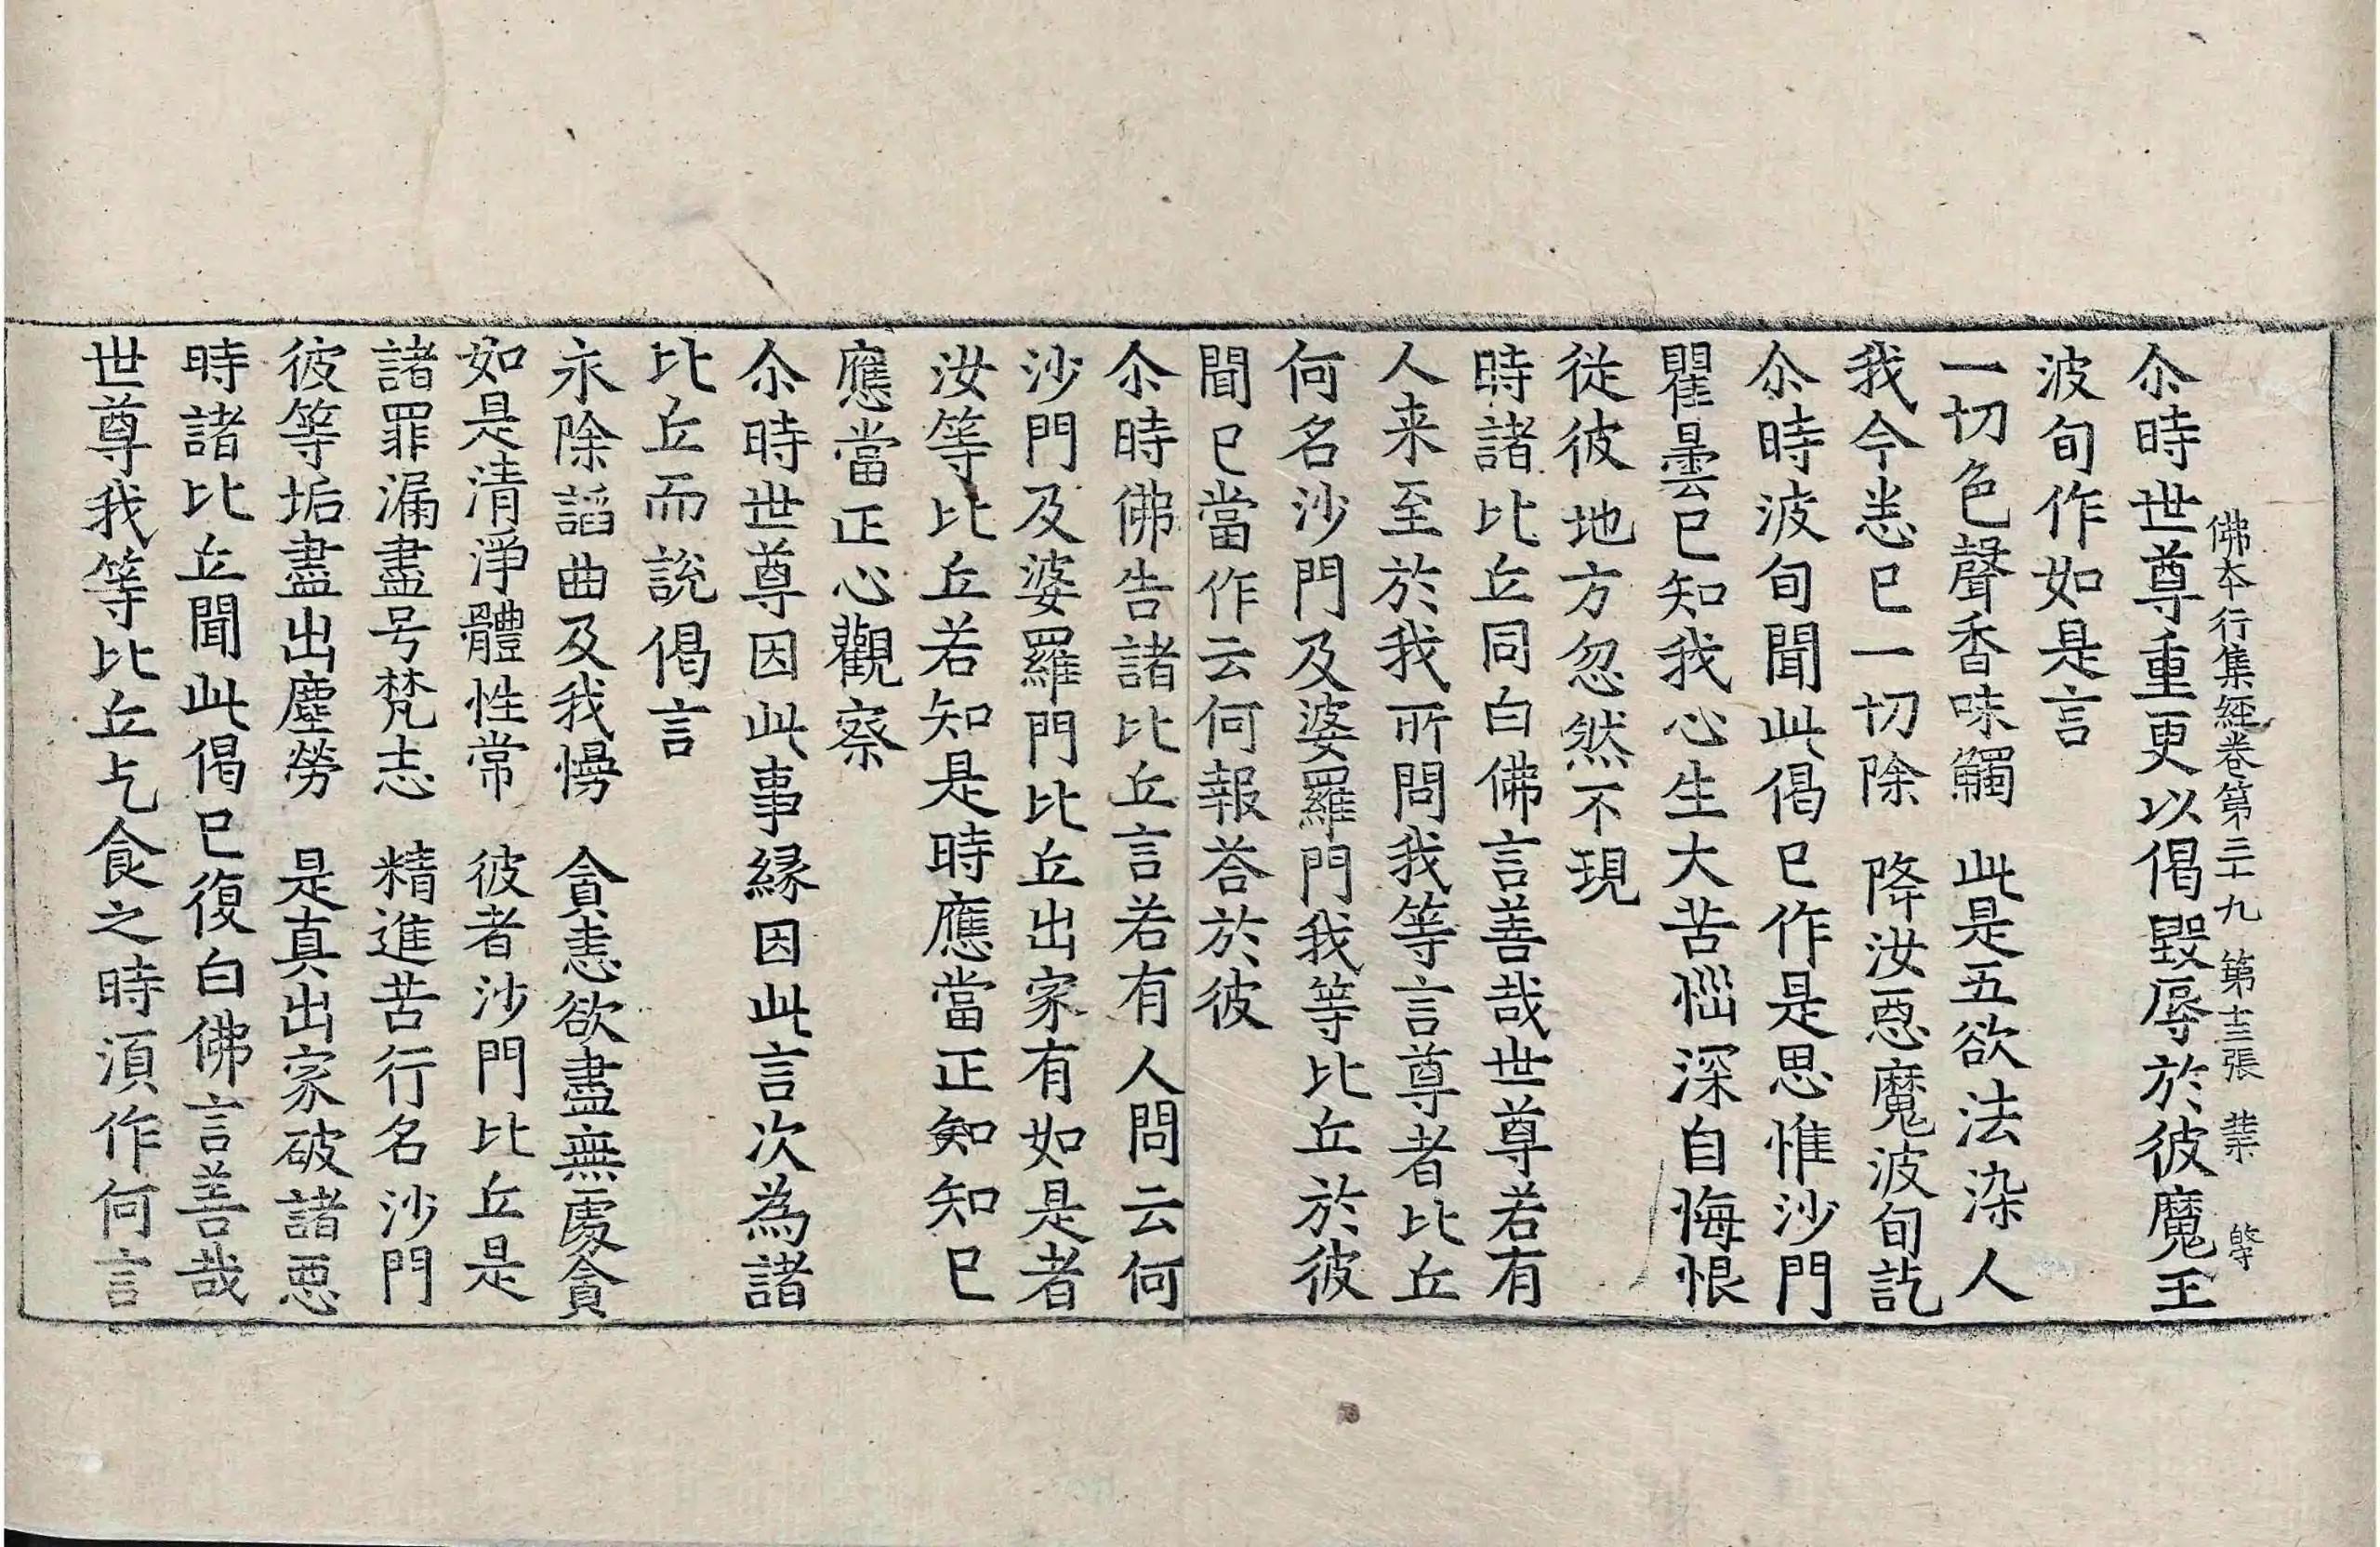 佛本行集經卷第三十九 第十三張 業
尒時世尊重更以偈毀辱於彼魔王
波旬作如是言
一切色聲香味觸 此是五欲法染人
我今悉已一切除 降汝惡魔波旬訖
尒時波旬聞此偈已作是思惟沙門
瞿曇已知我心生大苦惱深自悔恨
從彼地方忽然不現
時諸比丘同白佛言善哉世尊若有
人来至於我所問我等言尊者比丘
何名沙門及婆羅門我等比丘於彼
聞已當作云何報荅於彼
尒時佛告諸比丘言若有人問云何
沙門及婆羅門比丘出家有如是者
汝等比丘若知是時應當正知知已
應當正心觀察
尒時世尊因此事緣因此言次為諸
比丘而說偈言
永除諂曲及我慢 貪恚欲盡無處貪
如是清淨體性常 彼者沙門比丘是
諸罪漏盡号梵志 精進苦行名沙門
彼等垢盡出塵勞 是真出家破諸惡
時諸比丘聞此偈已復白佛言善哉
世尊我等比丘乞食之時湏作何言